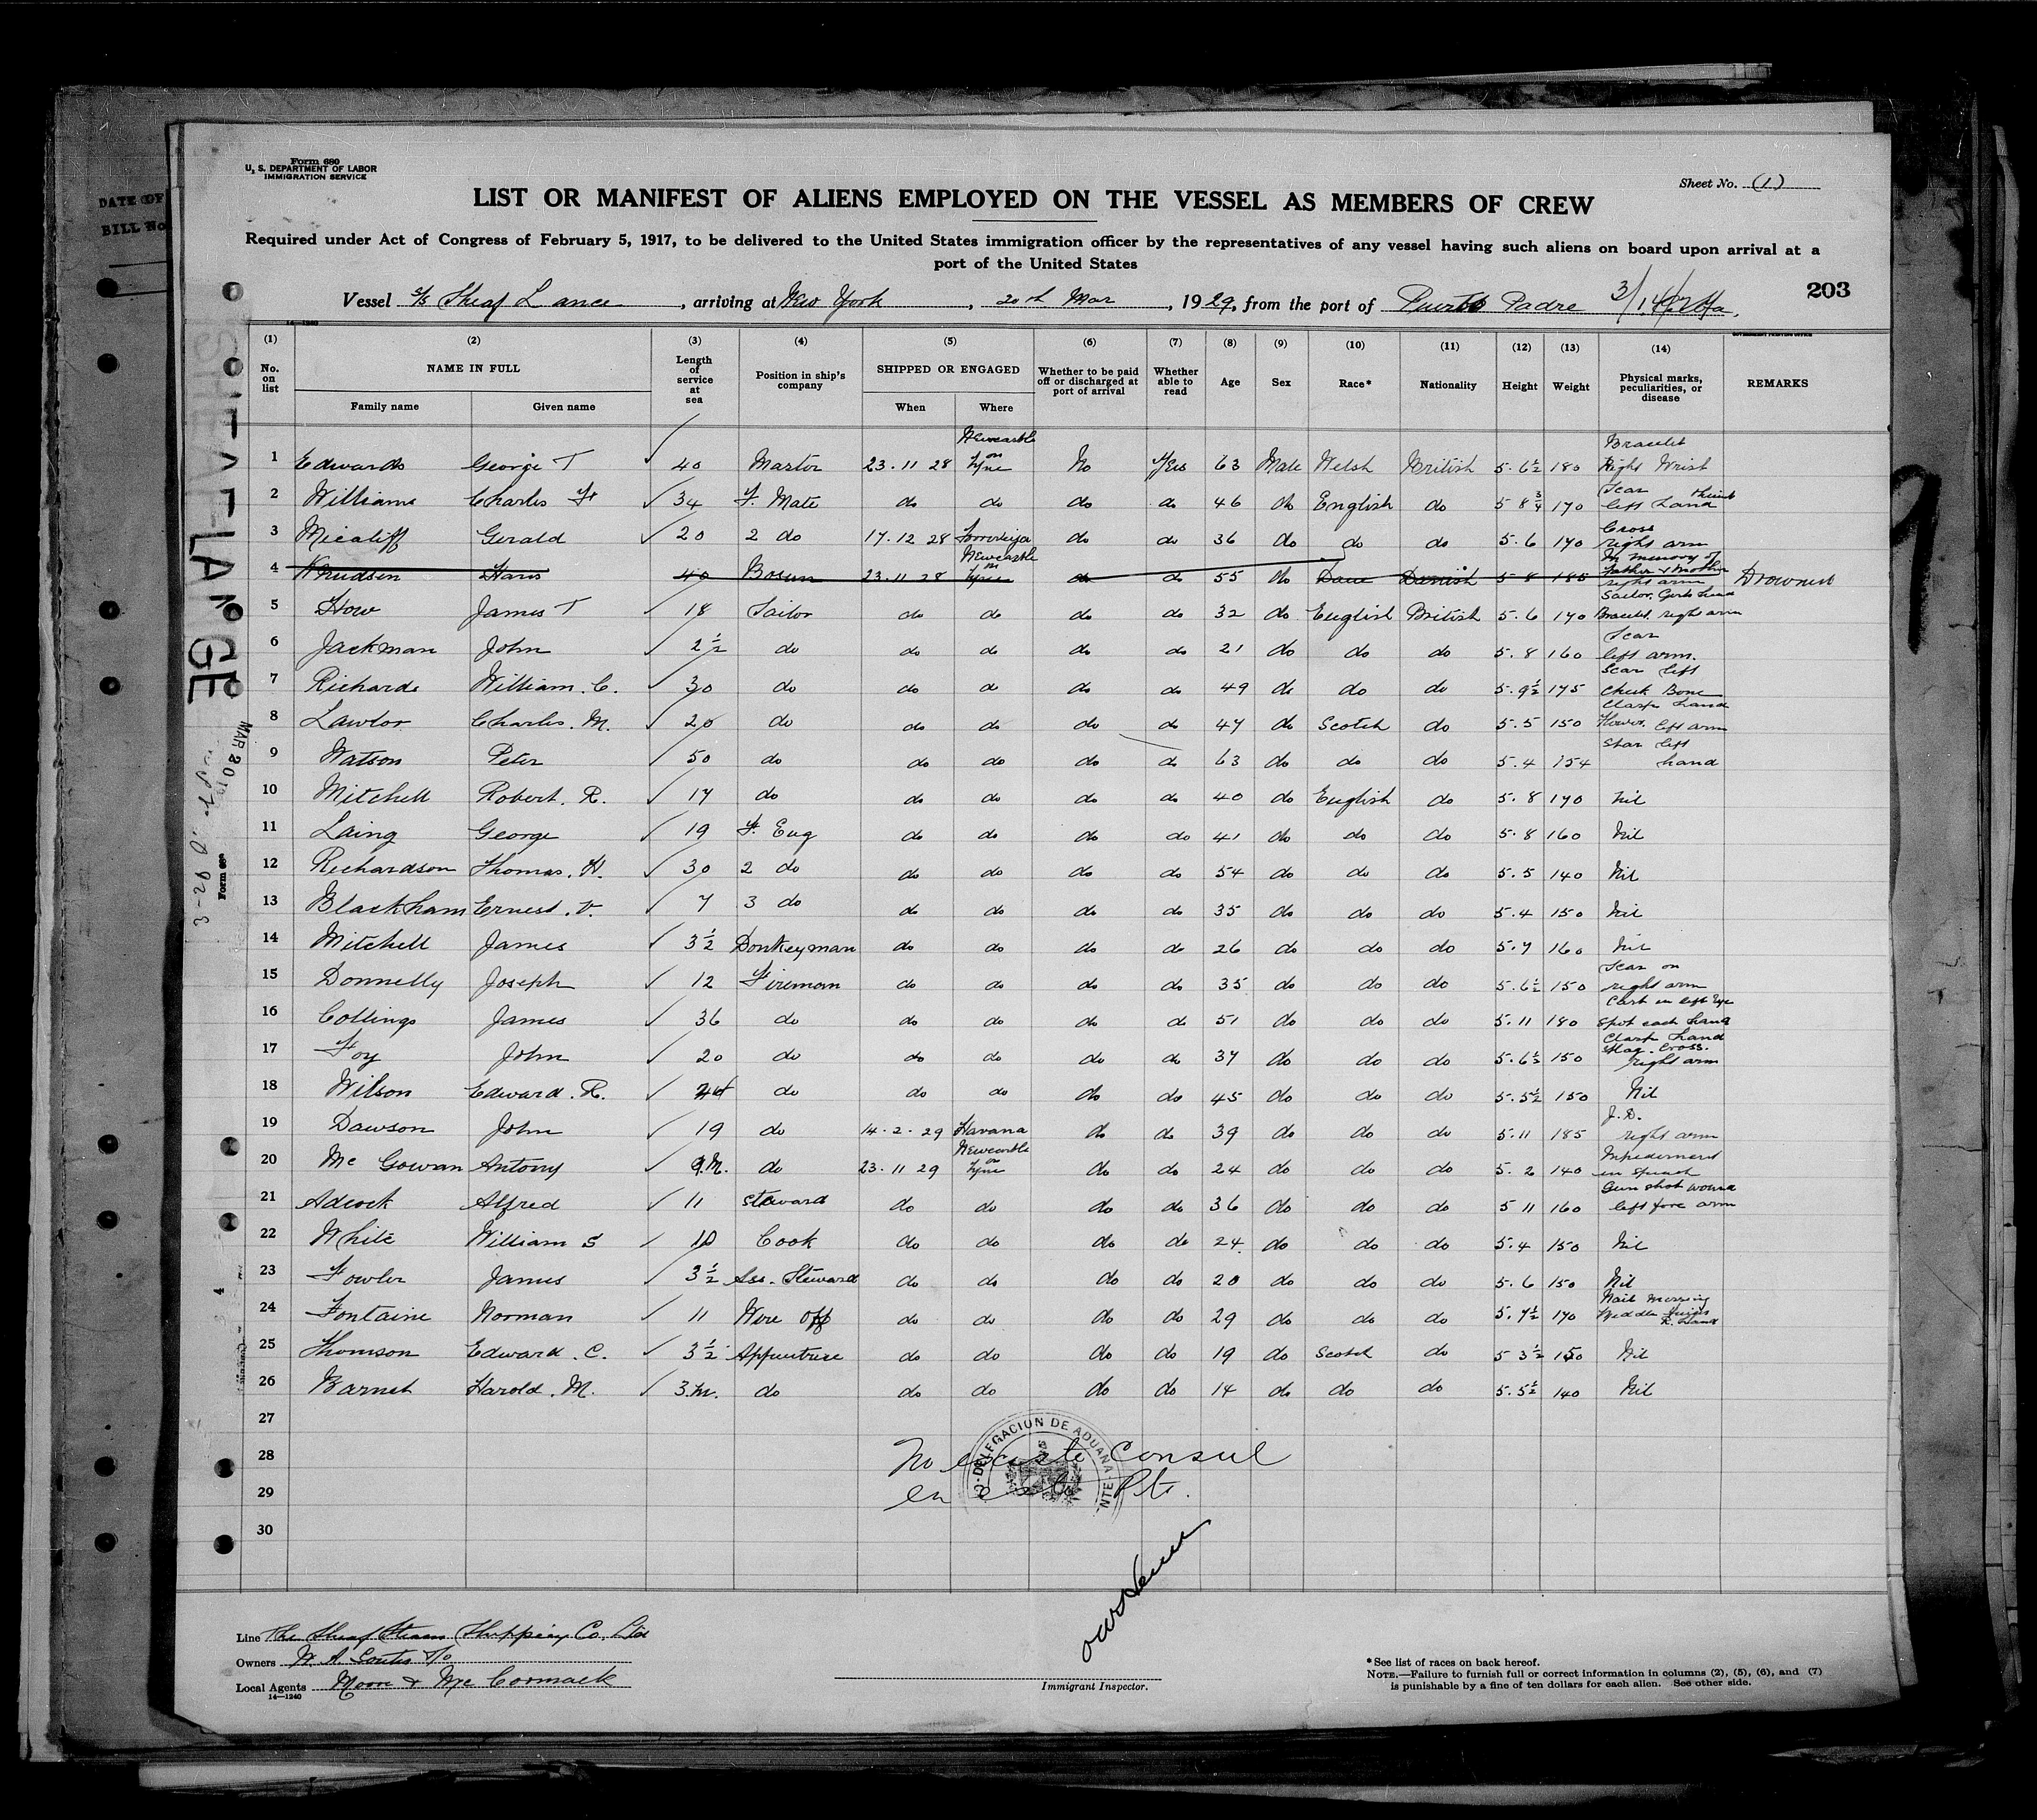 DATE OF
BILL No
Form 680
U. S. DEPARTMENT OF LABOR
IMMIGRATION SERVICE
Sheet No. (1)
LIST OR MANIFEST OF ALIENS EMPLOYED ON THE VESSEL AS MEMBERS OF CREW
Required under Act of Congress of February 5, 1917, to be delivered to the United States immigration officer by the representatives of any vessel having such aliens on board upon arrival at a
port of the United States
Vessel S/S Sheaf Lance, arriving at New York, 20th Mar, 1929, from the port of Puerto Padre
203
14-1240
GOVERNMENT PRINTING OFFICE
(1) (2) (3) (4) (5) (6) (7) (8) (9) (10) (11) (12) (13) (14)
No. on list NAME IN FULL Length of service at sea Position in ship's company SHIPPED OR ENGAGED Whether to be paid off or discharged at port of arrival Whether able to read Age Sex Race* Nationality Height Weight Physical marks, peculiarities, or disease REMARKS
Family name Given name When Where
1 Edwards George T 40 Master 23.11 28 Newcastle on Tyne No Yes 63 Male Welsh British 5.6½ 180 Bracelet Right Wrist
2 Williams Charles F. 34 F. Mate do do do do 46 do English do 5 8¾ 170 Scar thumb left hand
3 Micaliff Gerald 20 2 do 17.12 28 do do 36 do do do 5.6 170 Cross right arm
4 Knudsen Hans 40 Bosun 23.11 28 Newcastle on Tyne do do 55 do Dane Danish 5 8 185 In memory of Father & Mother right arm Drowned
5 How James T 18 Sailor do do do do 32 do English British 5.6 170 Sailor, Girls head Bracelet right arm
6 Jackman John 2½ do do do do do 21 do do do 5.8 160 Scar left arm.
7 Richards William. C. 30 do do do do do 49 do do do 5.9½ 175 Scar left Cheek Bone
8 Lawlor Charles. M. 20 do do do do do 47 do Scotch do 5.5 150 Clasp hand Flower. left arm
9 Watson Peter 50 do do do do do 63 do do do 5.4 154 Star left hand
10 Mitchell Robert. R. 17 do do do do do 40 do English do 5.8 170 Nil
11 Laing George 19 F. Eng do do do do 41 do do do 5.8 160 Nil
12 Richardson Thomas. H. 30 2 do do do do do 54 do do do 5.5 140 Nil
13 Blackham Ernest. V. 7 3 do do do do do 35 do do do 5.4 150 Nil
14 Mitchell James 3½ Donkeyman do do do do 26 do do do 5.7 160 Nil
15 Donnelly Joseph 12 Fireman do do do do 35 do do do 5.6½ 150 Scar on right arm
16 Collings James 36 do do do do do 51 do do do 5.11 180 Cast in left Eye Spot each hand
17 Foy John 20 do do do do do 37 do do do 5.6½ 150 Clasp hand Flag. Cross. right arm
18 Wilson Edward. R. do do do do do 45 do do do 5.5½ 150 Nil
19 Dawson John 19 do 14.2.29 Havana do do 39 do do do 5.11 185 J.D. right arm
20 Mc Gowan Antony 9.M. do 23.11 29 Newcastle on Tyne do do 24 do do do 5.2 140 Impediment in speech
21 Adcock Alfred 11 Steward do do do do 36 do do do 5 11 160 Gun shot wound left fore arm
22 White William S 10 Cook do do do do 24 do do do 5.4 150 Nil
23 Fowler James 3½ Ass. Steward do do do do 20 do do do 5.6 150 Nil
24 Fontaine Norman 11 Wire Off do do do do 29 do do do 5.7½ 170 Nail missing Middle finger R. Hand
25 Thomson Edward. C. 3½ Apprentice do do do do 19 do Scotch do 5 3½ 150 Nil
26 Barnet Harold. M. 3.M. do do do do do 14 do do do 5.5½ 140 Nil
27
28
29
30
No existe Consul
en este Pto.
DELEGACION DE ADUANA
SHEAF LANCE
MAR 20
Form 680
Line The Sheaf Steam Shipping Co. Ltd
Owners W. A. Souter & Co
Local Agents Moore & Mc Cormack
14-1240
Immigrant Inspector.
*See list of races on back hereof.
NOTE.—Failure to furnish full or correct information in columns (2), (5), (6), and (7)
is punishable by a fine of ten dollars for each alien. See other side.